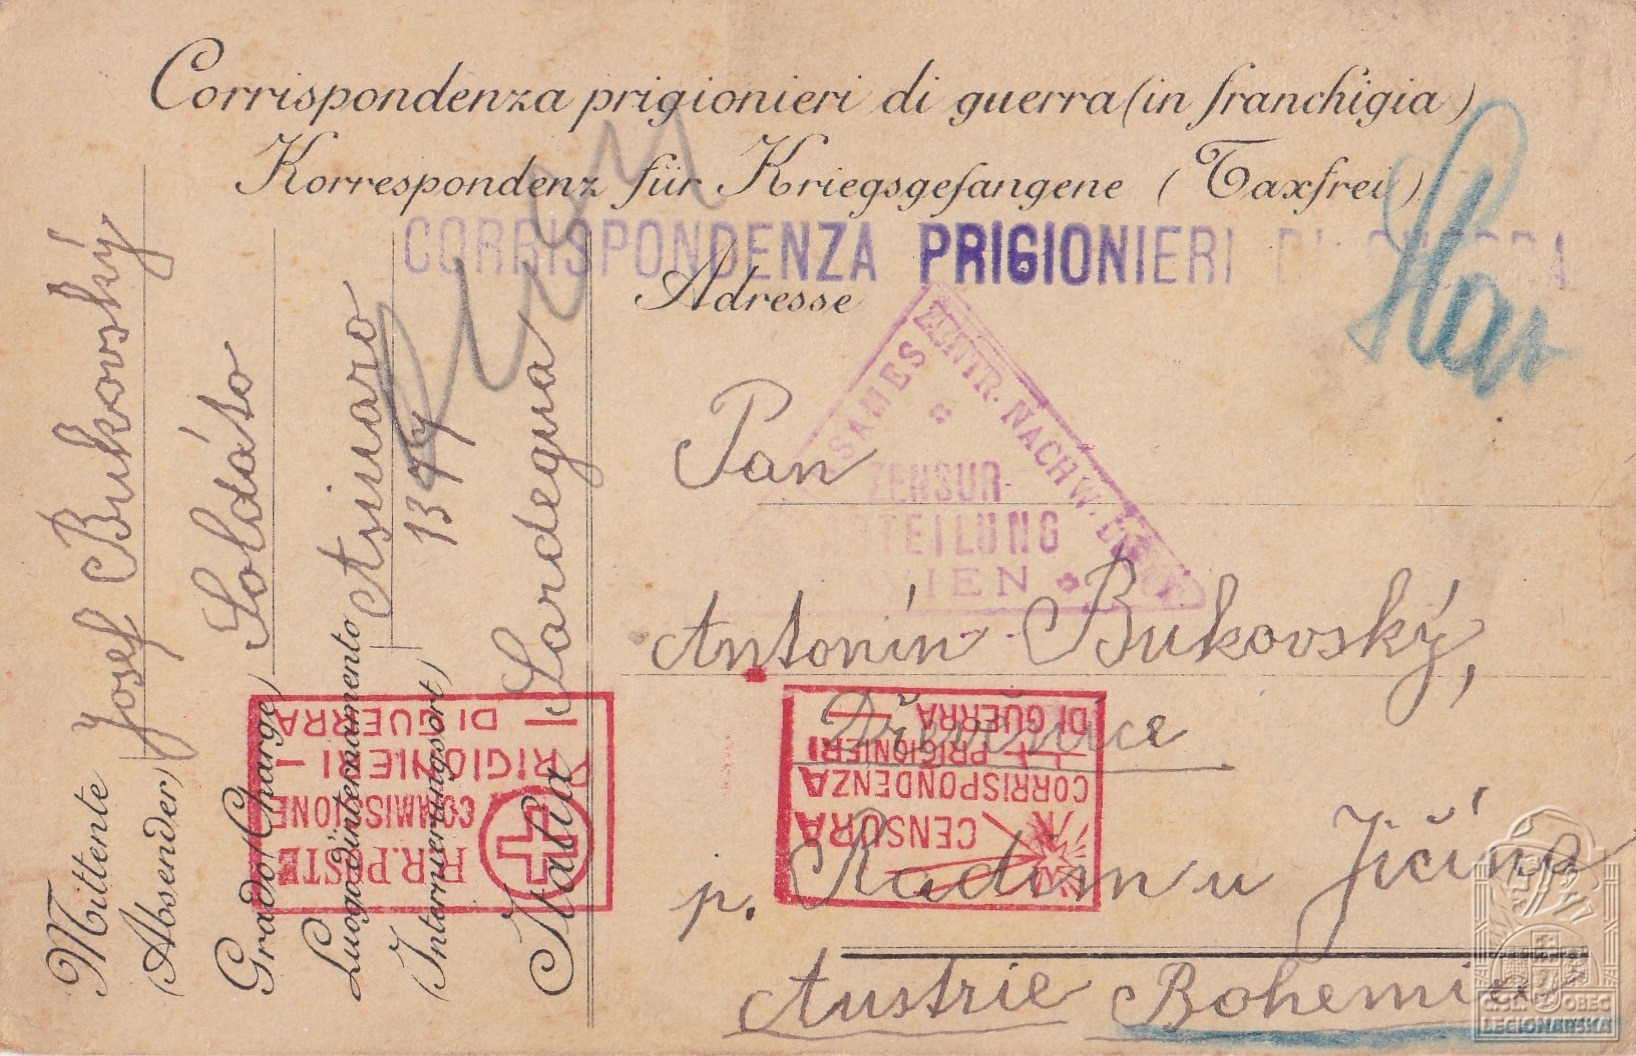 Corrispondenza prigionieri di guerra (in franchigia)
Korrespondenz für Kriegsgefangene (Taxfrei)
CORRISPONDENZA PRIGIONIERI DI GUERRA
Adresse
Mittente Josef Bukovský
(Absender)
Grado (Charge) Soldáto
Luogo d'internamento Asinaro
(Internierungsort) 1377
Sardegna
Italia
ZENSUR-
ABTEILUNG
WIEN
KONTR. NACHW.
Pan
Antonín Bukovský,
Dřevěnice
p. Radim u Jičína
Austrie Bohemia
P.R. POSTE
COMMISSIONE
PRIGIONIERI
DI GUERRA
CENSURA
CORRISPONDENZA
PRIGIONIERI
DI GUERRA
ČSL. OBEC
LEGIONÁŘSKÁ